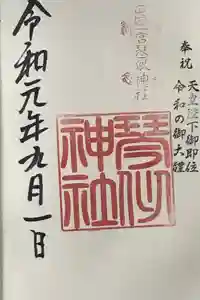 奉祝
天皇陛下御即位
令和の御大禮
一宮琴似神社
琴似
神社
令和元年九月一日